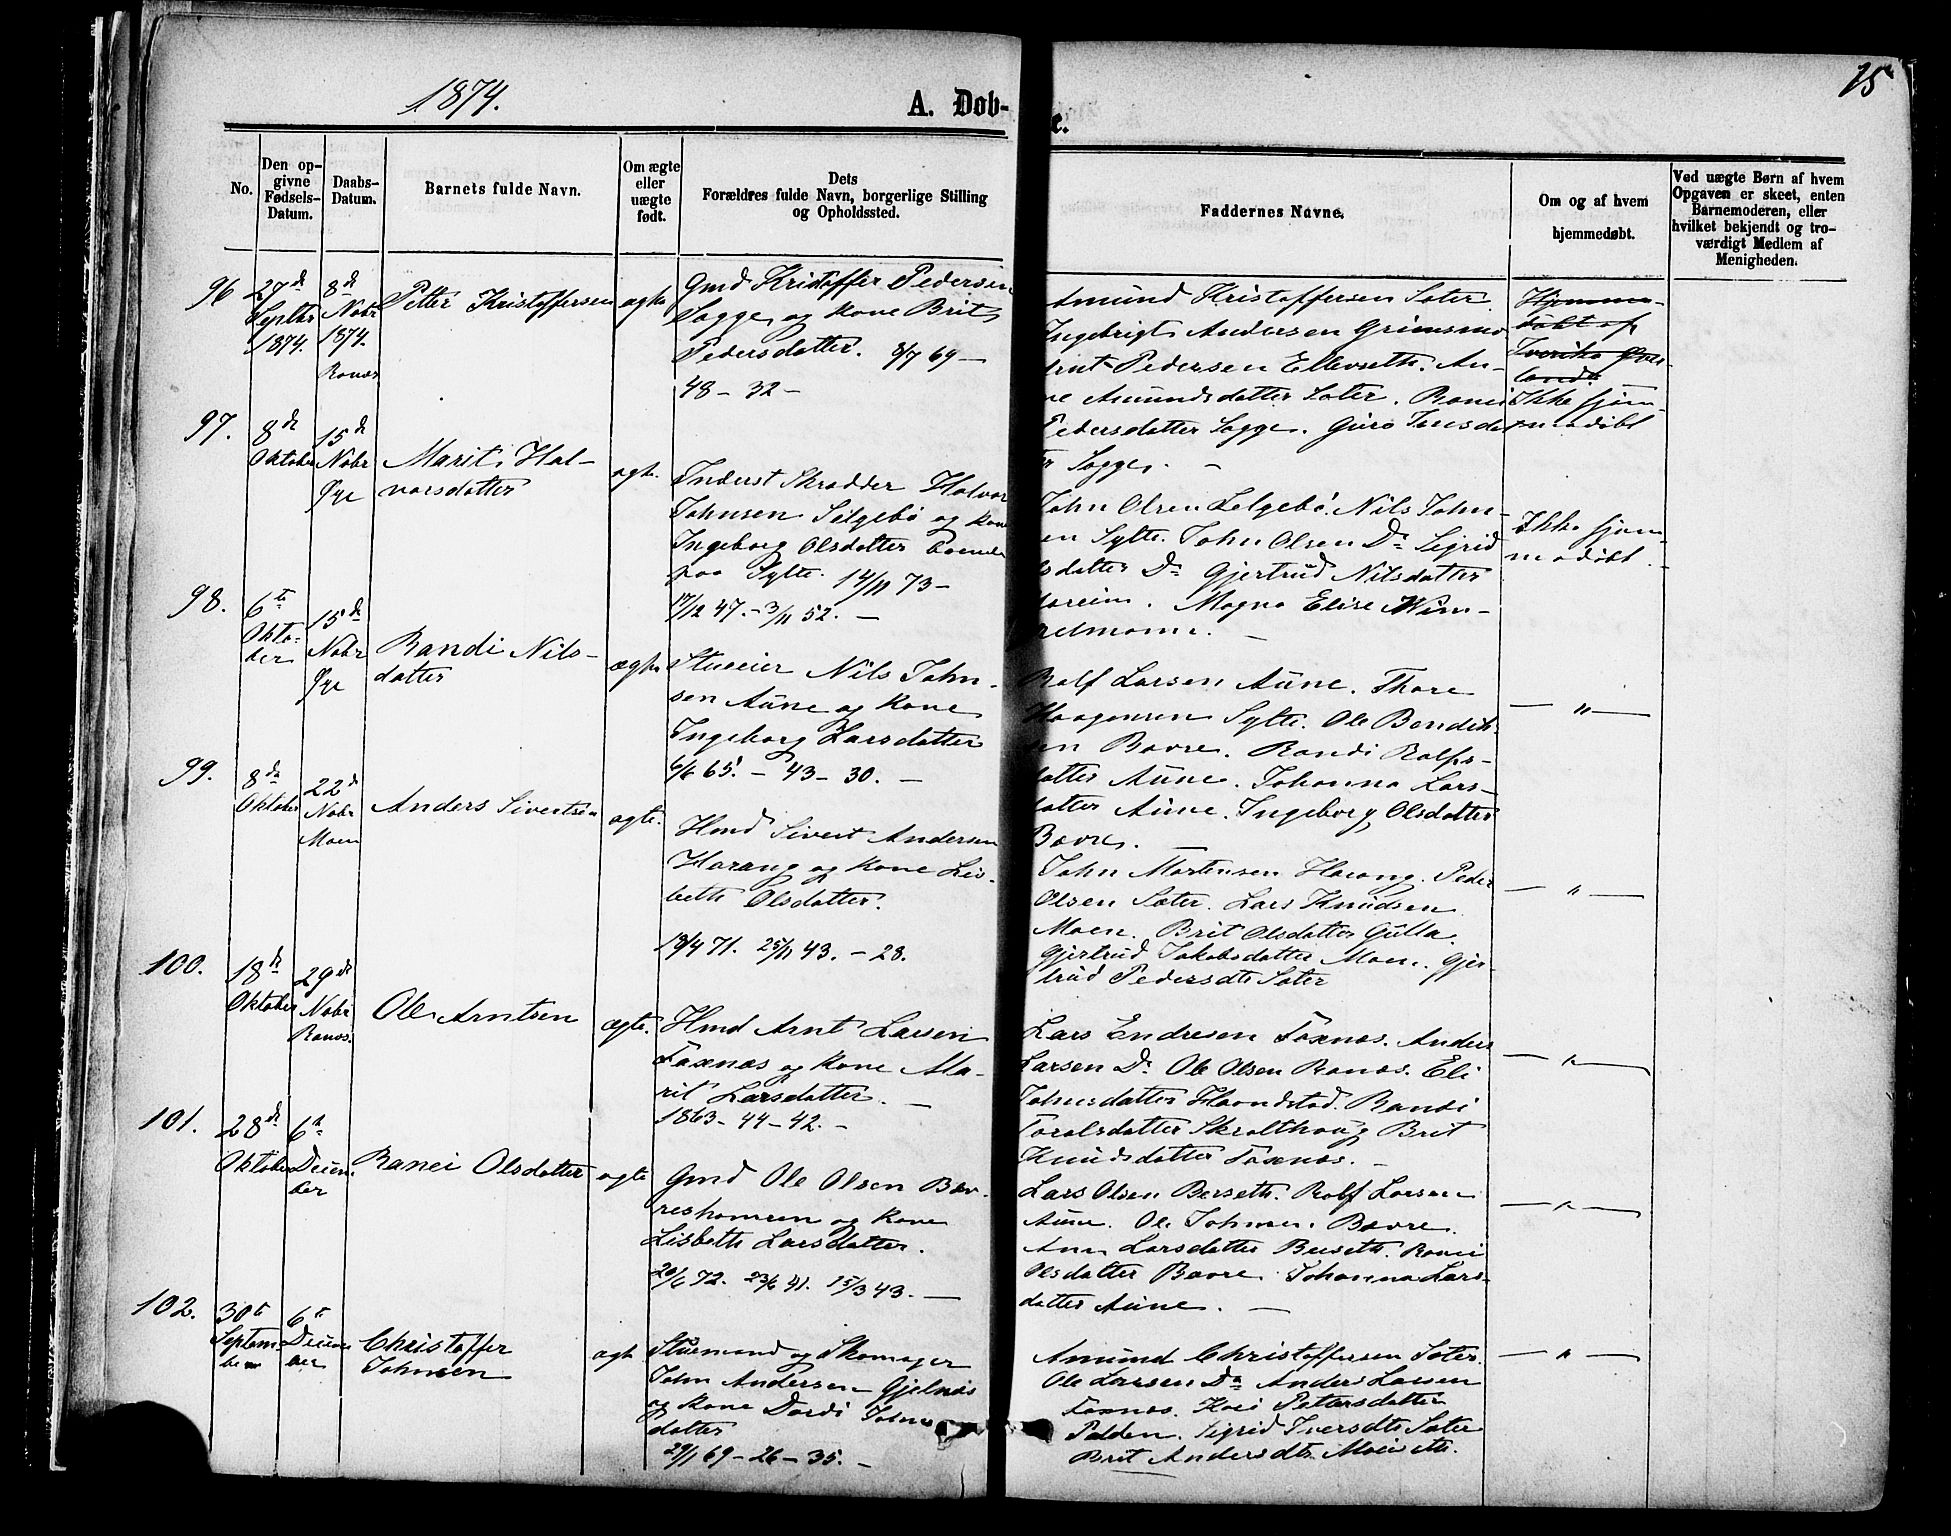 1874.
A. Døb-
e.
15
No.
Den op-
givne
Fødsels-
Datum.
Daabs-
Datum.
Barnets fulde Navn.
Om ægte
eller
uægte
født.
Dets
Forældres fulde Navn, borgerlige Stilling
og Opholdssted.
Faddernes Navne.
Om og af hvem
hjemmedøbt.
Ved uægte Børn af hvem
Opgaven er skeet, enten
Barnemoderen, eller
hvilket bekjendt og tro-
værdigt Medlem af
Menigheden.
96
27de
Septbr
1874.
8de
Nobr
1874.
Petter Kristoffersen
ægte
Gmd Kristoffer Pedersen
Sogge og Kone Brit
Pedersdatter. 8/7 69 —
48 — 32 —
Amund Kristoffersen Sæter
Ingebrigt Andersen Grimsmo
Pedersen Ellevseth. An-
ne Amundsdatter Sæter. Ranei
Pedersdatter Sogge. Guro Jonsdat
Sogge. —
Hjemme-
døbt af
Ikke hjem-
medøbt
97.
8de
Oktober
15de
Nobr
Øye
Marit Hal-
vorsdatter
ægte.
Inderst Skrædder Halvor
Johnsen Selgebø og Kone
Ingeborg Olsdatter boende
paa Sylte. 14/11 73 —
17/12 47. — 3/11 52. —
John Olsen Selgebø. Nils John-
sen Sylte. John Olsen Do Sigrid
sdatter Do Gjertrud Nilsdatter
Magna Elise Wim-
melmann. —
Ikke hjem
medøbt.
98.
6te
Okto-
ber
15de
Nobr
Øye
Randi Nils-
datter
ægte
Stueeier Nils John-
sen Aune og Kone
Ingeborg Larsdatter
6/6 65. — 43 — 30. —
Rolf Larsen Aune. Thore
Haagensen Sylte. Ole Bendik-
sen Bævre. Randi Rolfs-
datter Aune. Johanna Lars-
datter Aune. Ingeborg Olsdatter
Bævre.
— " —
99.
8de
Oktober
22de
Nobr
Moen
Anders Sivertsen
ægte.
Hmd Sivert Andersen
Harang og Kone Lis-
beth Olsdatter.
13/4 71. 25/11 43. — 28.
John Mortensen Harang. Peder
Olsen Sæter. Lars Knudsen
Moen. Brit Olsdatter Gulla.
Gjertrud Jakobsdatter Moen. Gjer-
trud Pedersdtr Sæter
— " —
100.
18de
Oktober
29de
Nobr
Ranæs.
Ole Arntsen
ægte.
Hmd Arnt Larsen
Foxnæs og Kone Ma-
rit Larsdatter. —
1863 — 44 — 42. —
Lars Endresen Foxnæs. Anders
Larsen Do Ole Olsen Ranæs. Eli
Johnsdatter Haandstad. Randi
Toralsdatter Skralthaug Brit
Knudsdatter Foxnæs. —
— " —
101.
28de
Oktober
6te
Decem
ber
Ranei Olsdatter
ægte
Gmd Ole Olsen Bæv-
reshomsen og Kone
Lisbeth Larsdatter.
20/6 72. 23/6 41. 15/3 43. —
Lars Olsen Berseth. Rolf Larsen
Aune. Ole Johnsen Bævre.
Ane Larsdatter Berseth. Ranei
Olsdatter Bævre. Johanna Lars-
datter Aune. —
— " —
102.
30te
Septem
ber
6te
Decem
ber
Christoffer
Johnsen
ægte
Stuemand og Skomager
John Andersen Gjelnæs
og Kone Dordi Johns
datter
29/1 69 — 26 — 35. —
Amund Christoffersen Sæter.
Ole Larsen Do Anders Larsen
Foxnæs. Kari Pettersdatter
Polden. Sigrid Iversdtr Sæter
Brit Andersdtr
— " —